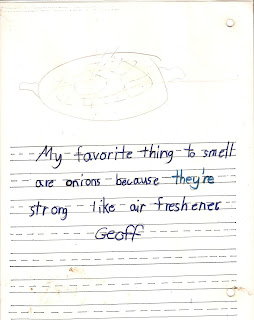 My favorite thing to smell
are onions because they're
strong like air freshener
Geoff